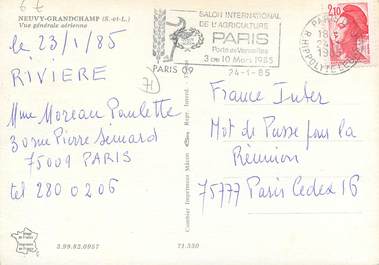 6 F
NEUVY-GRANDCHAMP (S.-et-L.)
Vue générale aérienne
le 23/1/85
RIVIERE
Mme Moreau Paulette
30 rue Pierre Semard
75009 PARIS
tel 280 02 06
3.99.82.0957
71.550
Combier Imprimeur Mâcon
Repr. Interd.
71
PARIS 09
SALON INTERNATIONAL
DE L'AGRICULTURE
PARIS
Porte de Versailles
3 au 10 Mars 1985
24-1-85
PARIS
R. HIPPOLYTE LEBAS
2,10
France Inter
Mot de Passe pour la
Réunion
75777 Paris Cedex 16